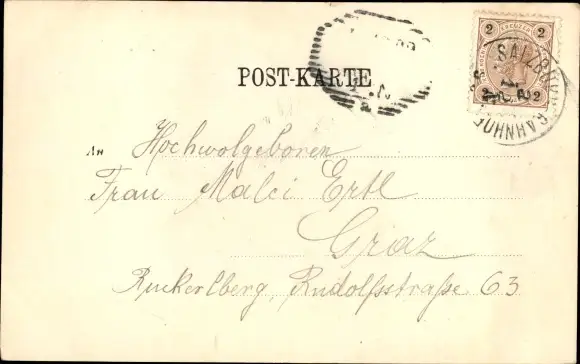 2 KREUZER 2
2 2
SALZBURG BAHNHOF
POST-KARTE
An Hochwolgeboren
Frau Malci Ertl
Graz
Ruckerlberg, Rudolfsstraße 63